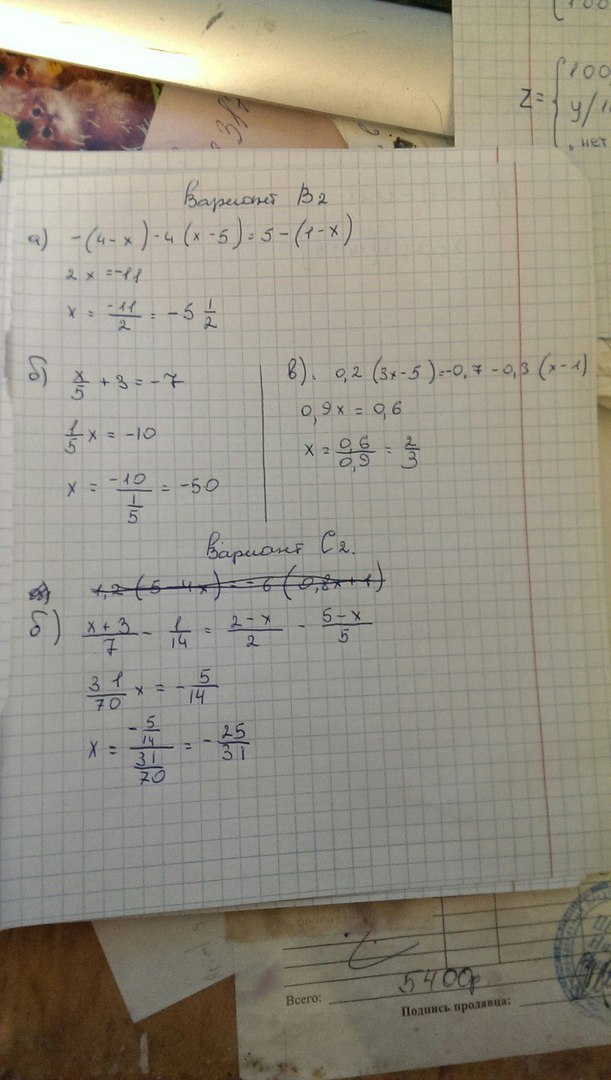 Z = { 100
y/1
, нет
Вариант В2
а) -(4-x)-4(x-5)=5-(1-x)
2x = -11
x = -11/2 = -5 1/2
б) x/5 + 3 = -7
1/5 x = -10
x = -10/(1/5) = -50
в). 0,2(3x-5)=-0,7-0,3(x-1)
0,9x = 0,6
x = 0,6/0,9 = 2/3
Вариант С2.
1,2(5-4x) = -6(0,8x+1)
б) (x+3)/7 - 1/14 = (2-x)/2 - (5-x)/5
31/70 x = -5/14
x = (-5/14)/(31/70) = -25/31
5400р
Всего:
Подпись продавца: